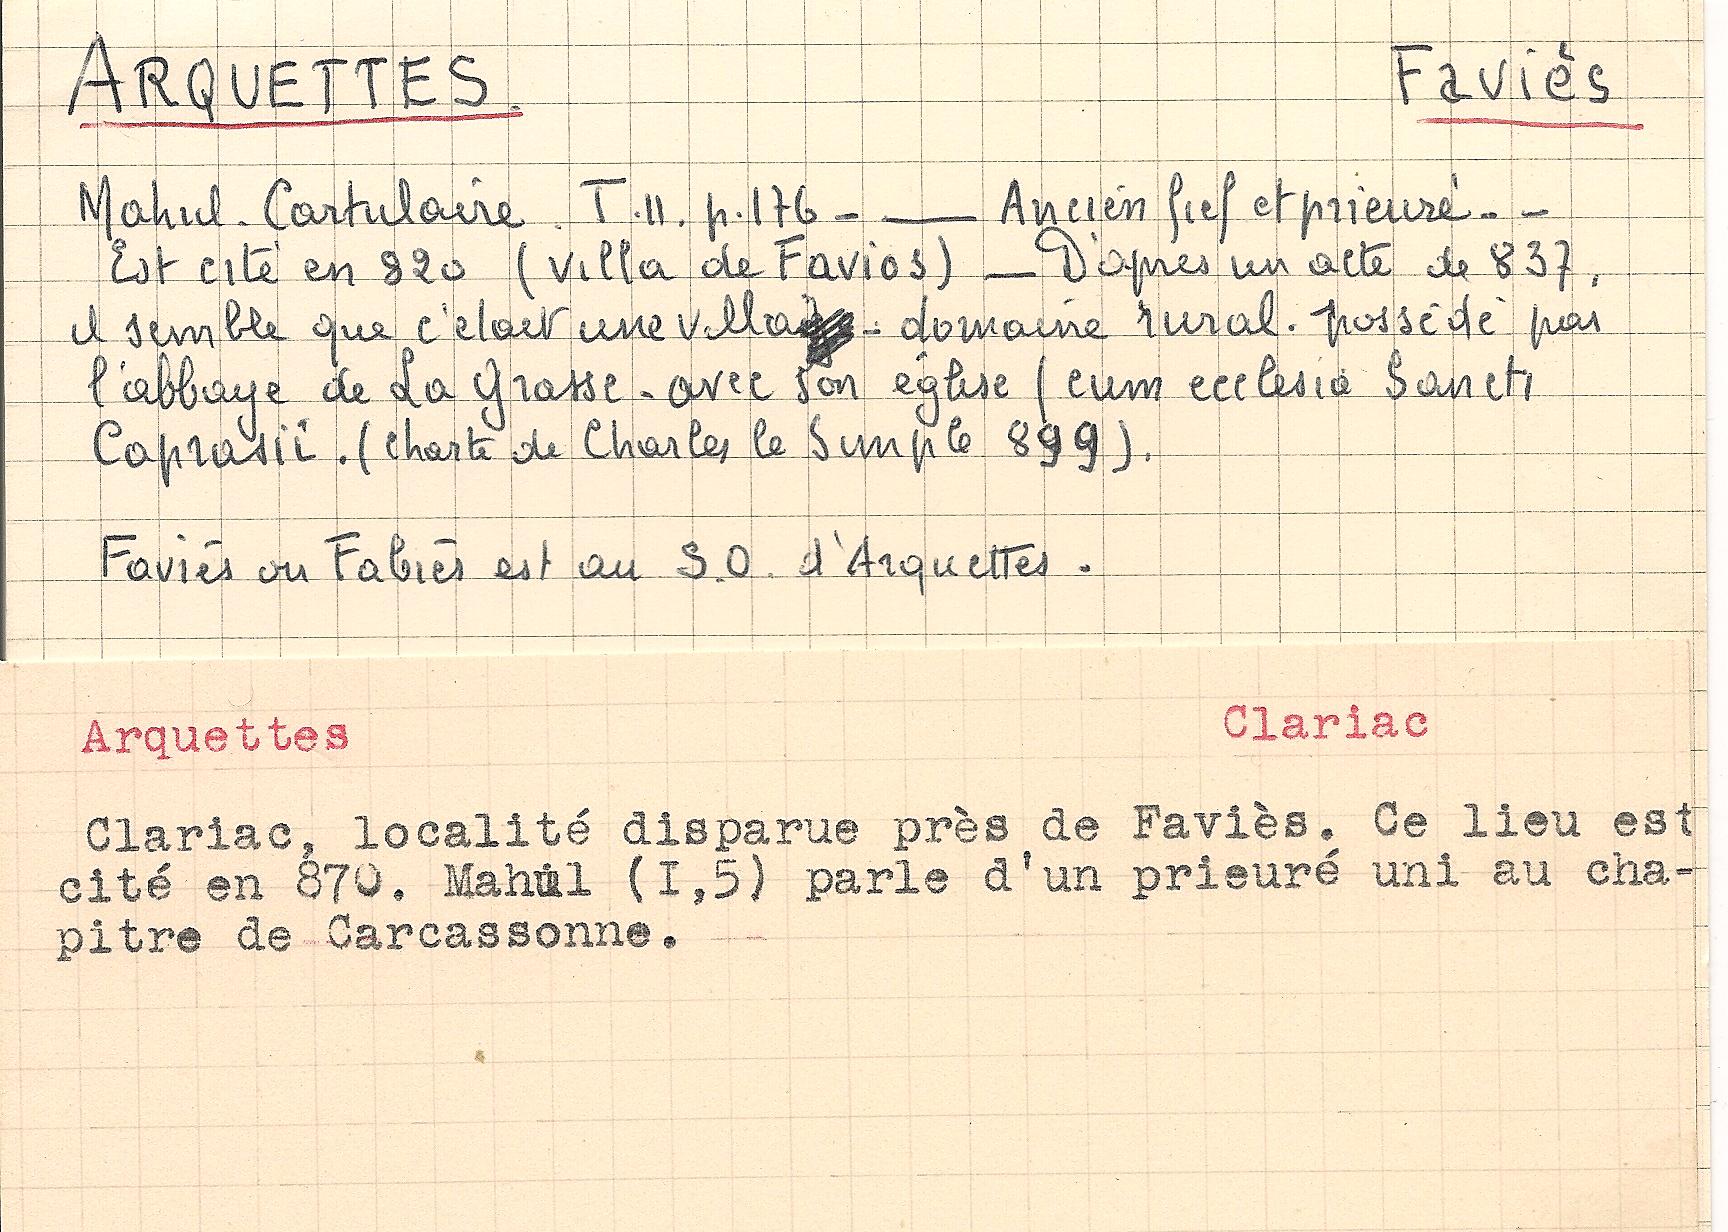 ARQUETTES. Faviès
Mahul. Cartulaire. T.II. p.176 - — Ancien fief et prieuré. - -
Est cité en 820 (villa de Favios) — D'après un acte de 837,
il semble que c'était une villa - domaine rural. possédé par
l'abbaye de La Grasse - avec son église (cum ecclesia Sancti
Caprasii. (charte de Charles le Simple 899).
Faviès ou Fabiès est au S.O. d'Arquettes.
Arquettes Clariac
Clariac, localité disparue près de Faviès. Ce lieu est
cité en 870. Mahul (I,5) parle d'un prieuré uni au cha-
pitre de Carcassonne.